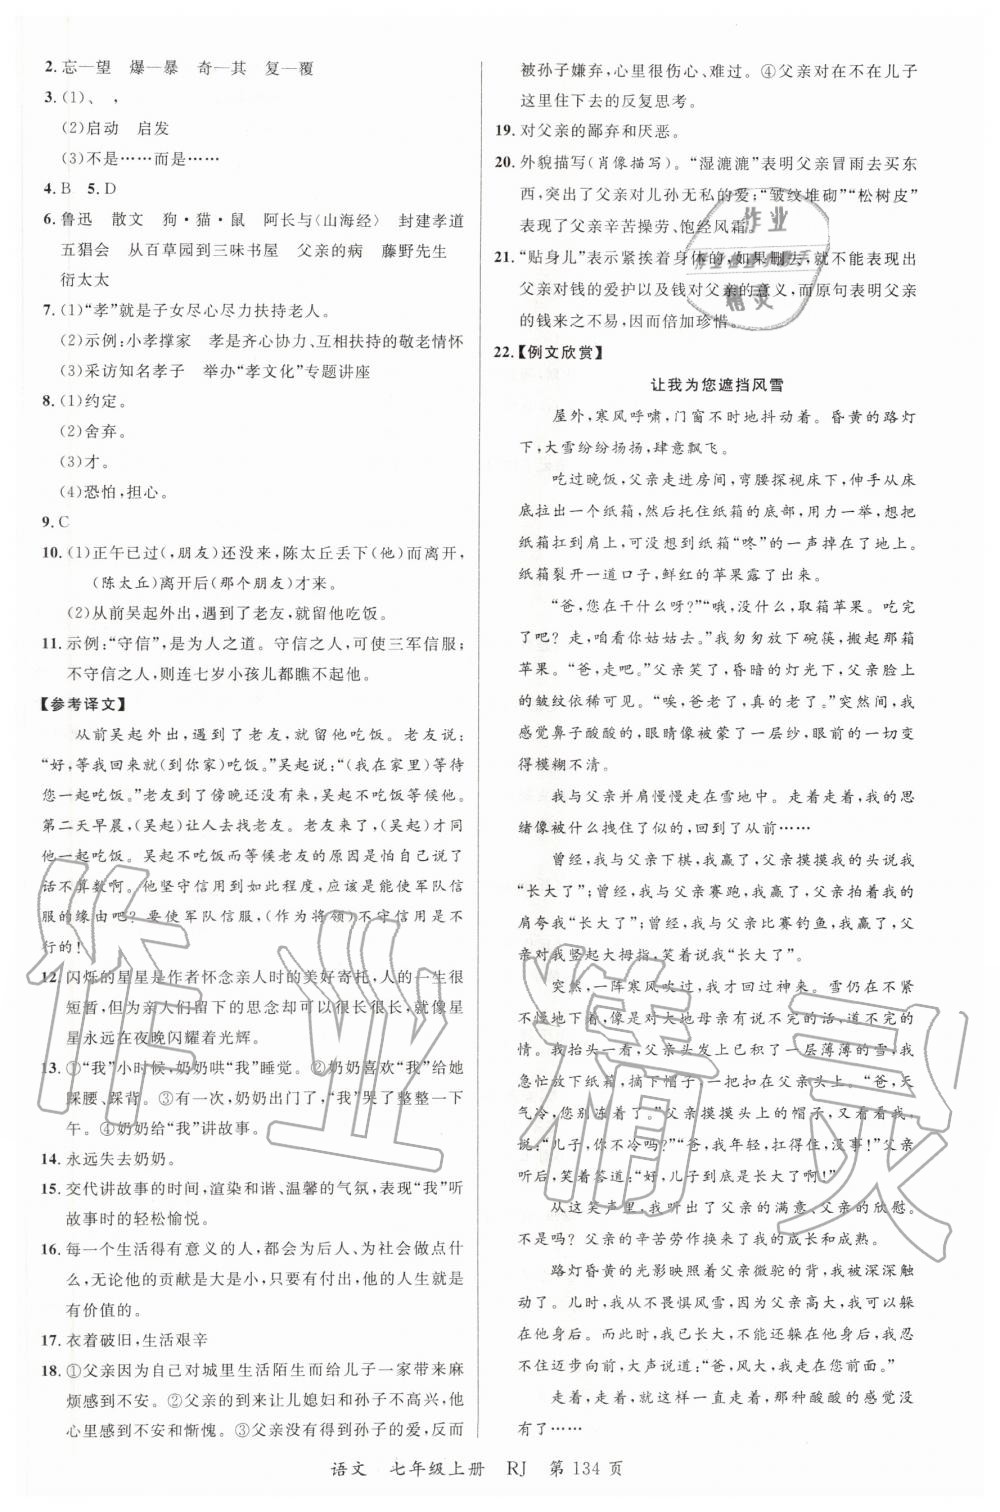 2. 忘—望　爆—暴　奇—其　复—覆
3. (1)、　，
(2)启动　启发
(3)不是……而是……
4. B　5. D
6. 鲁迅　散文　狗·猫·鼠　阿长与《山海经》　封建孝道
五猖会　从百草园到三味书屋　父亲的病　藤野先生
衍太太
7. (1)“孝”就是子女尽心尽力扶持老人。
(2)示例：小孝撑家　孝是孝心协力、互相扶持的敬老情怀
(3)采访知名孝子　举办“孝文化”专题讲座
8. (1)约定。
(2)舍弃。
(3)才。
(4)恐怕，担心。
9. C
10. (1)正午已过(，朋友)还没来，陈太丘丢下(他)而离开，
(陈太丘)离开后(那个朋友)才来。
(2)从前吴起外出，遇到了老友，就留他吃饭。
11. 示例：“守信”，是为人之道。守信之人，可使三军信服；
不守信之人，则连七岁小孩儿都瞧不起他。
【参考译文】
从前吴起外出，遇到了老友，就留他吃饭。老友说：
“好，等我回来就(到你家)吃饭。”吴起说：“(我在家里)等待
您一起吃饭。”老友到了傍晚还没来，吴起不吃饭等候他。
第二天早晨，(吴起)让人去找老友。老友来了，(吴起)才同
他一起吃饭。吴起不吃饭而等候老友的原因是怕自己说了
话不算数啊。他坚守信用到如此程度，应该是能使军队信
服的缘由吧？要使军队信服，(作为将领)不守信用是不
行的！
12. 闪烁的星星是作者怀念亲人时的美好寄托，人的一生很
短暂，但为亲人们留下的思念却可以很长很长，就像星
星永远在夜晚闪耀着光辉。
13. ①“我”小时候，奶奶哄“我”睡觉。②奶奶喜欢“我”给她
踩腰、踩背。③有一次，奶奶出门了，“我”哭了整整一下
午。④奶奶给“我”讲故事。
14. 永远失去奶奶。
15. 交代讲故事的时间，渲染和谐、温馨的气氛，表现“我”听
故事时的轻松愉悦。
16. 每一个生活得有意义的人，都会为后人、为社会做点什
么，无论他的贡献是大是小，只要有付出，他的人生就是
有价值的。
17. 衣着破旧，生活艰辛
18. ①父亲因为自己对城里生活陌生而给儿子一家带来麻
烦感到不安。②父亲的到来让儿媳妇和孙子不高兴，他
心里感到不安和惭愧。③父亲得到孙子的关爱，反而
被孙子嫌弃，心里很伤心、难过。④父亲对在不在儿子
这里住下去的反复思考。
19. 对父亲的鄙弃和厌恶。
20. 外貌描写(肖像描写)。“湿漉漉”表明父亲冒雨去买东
西，突出了父亲对儿孙无私的爱；“皱纹堆砌”“松树皮”
表现了父亲辛苦操劳、饱经风霜。
21. “贴身儿”表示紧挨着身体的，如果删去，就不能表现出
父亲对钱的爱护以及钱对父亲的意义，而原句表明父亲
的钱来之不易，因而倍加珍惜。
22.【例文欣赏】
让我为您遮挡风雪
屋外，寒风呼啸，门窗不时地抖动着。昏黄的路灯
下，大雪纷纷扬扬，肆意飘飞。
吃过晚饭，父亲走进房间，弯腰探视床下，伸手从床
底拉出一个纸箱，然后托住纸箱的底部，用力一举，想把
纸箱扛到肩上，可没想到纸箱“咚”的一声掉在了地上。
纸箱裂开一道口子，鲜红的苹果露了出来。
“爸，您在干什么呀？”“哦，没什么，取箱苹果。吃完
了吧？走，咱看你姑姑去。”我匆匆放下碗筷，搬起那箱
苹果。“爸，走吧。”父亲笑了，昏暗的灯光下，父亲脸上
的皱纹依稀可见。“唉，爸老了，真的老了。”突然间，我
感觉鼻子酸酸的，眼睛像被蒙了一层纱，眼前的一切变
得模糊不清。
我与父亲并肩慢慢走在雪地中。走着走着，我的思
绪像被什么拽住了似的，回到了从前……
曾经，我与父亲下棋，我赢了，父亲摸摸我的头说我
“长大了”；曾经，我与父亲赛跑，我赢了，父亲拍着我的
肩夸我“长大了”；曾经，我与父亲比赛钓鱼，我赢了，父
亲对我竖起大拇指，笑着说我“长大了”。
突然，一阵寒风吹过，我才回过神来。雪仍在不紧
不慢地下着，像对大地母亲有说不完的话，道不完的情。
我抬头一看，父亲头发上已积了一层薄薄的雪，我
急忙放下纸箱，摘下帽子，一把扣在父亲头上。“爸，天
气冷，您别冻着了。”父亲摸摸头上的帽子，
说：“儿子，你不冷吗？”“爸，我年轻，扛得住，没事！”父亲
听后，笑着答道：“好，儿子长大了。”
从这笑声里，我听出了父亲的满意、父亲的欣慰。
不是吗？父亲的辛苦劳作换来了我的成长和成熟。
路灯昏黄的光影映照着父亲微驼的背，我被深深触
动了。儿时，我从不畏惧风雪，因为父亲高大，我可以躲
在他身后。而此时，我已长大，无须躲在他身后，我忍
不住迈步向前，大声说道：“爸，让我走在您前面。”
走着，走着，就这样一直走着，那种酸酸的感觉没
有了……
语文　七年级上册　RJ　第 134 页
作业
精灵
作业精灵